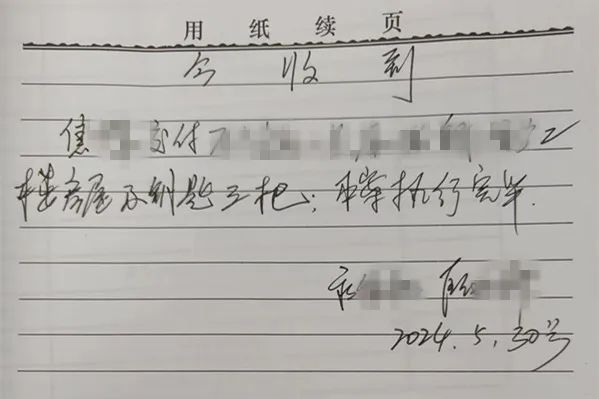 用纸续页
今收到
焦 交付
楼房屋及钥匙三把；本案执行完毕.
2024.5.30号